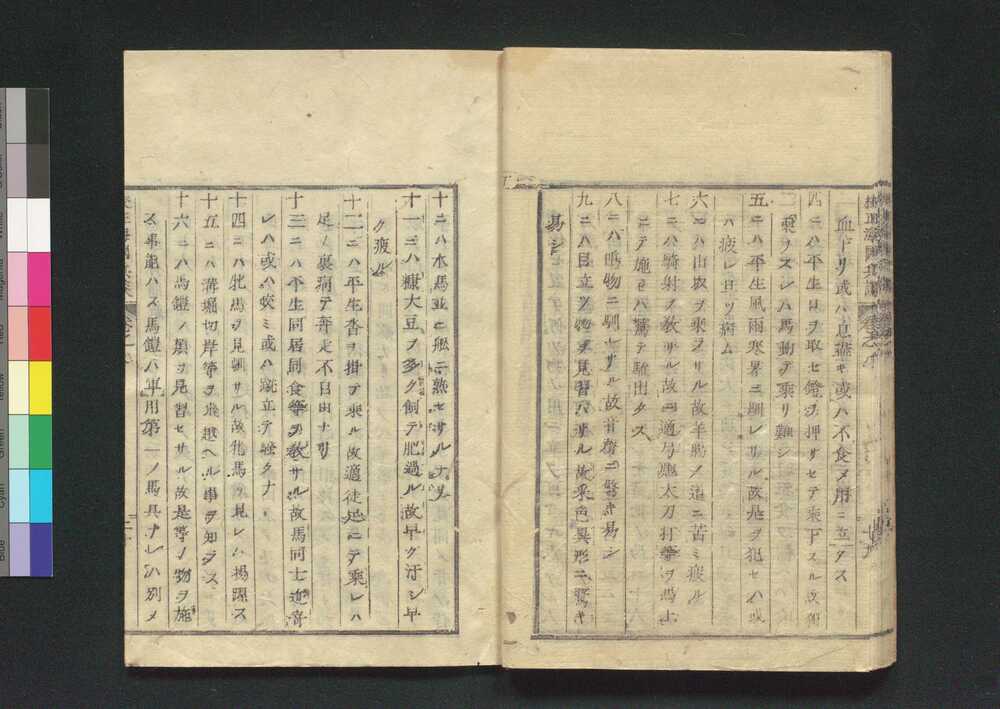 血下リ或ハ息蕩キ或ハ不食メ用ニ立タス
四ニハ平生口ヲ取セ鐙ヲ押リセテ乗下スル故獨
二乗ヲスレハ馬動テ乗リ難シ
五ニハ平生風雨寒暑ニ馴レサル故是ヲ犯セハ或
ハ疲レ且ツ病ム
六ニハ山坂ヲ乗ラサル故羊腸ノ道ニ苦ミ疲ル
七ニハ騎射ヲ教サル故ニ適弓鳥太刀打等ヲ馬上
ニテ施セハ驚テ馳出タス
八ニハ鳴物ニ馴レサル故音聲ニ驚キ易シ
九ニハ目立ツ物ヲ見習ハサル故采色異形ニ驚キ
易シ
十ニハ水馬並ヒ舩ニ熟セサルナリ
十一ニハ糠大豆ヲ多ク飼テ肥過ル故早ク汗シ早
ク疲ル
十二ニハ平生沓ヲ掛テ乗ル故適徒足ニテ乗レハ
足ノ裏痛テ奔走不自由ナリ
十三ニハ平生同居同食等ヲ教サル故馬同士近寄
レハ或ハ咬ミ或ハ蹴立テ騒クナリ
十四ニハ牝馬ヲ見馴サル故牝馬ヲ見レハ揚躍ス
十五ニハ溝堀切岸等ヲ飛越ヘル事ヲ知ラス
十六ニハ馬鎧ノ類ヲ見習セサル故是等ノ物ヲ施
ス事能ハス馬鎧ハ軍用第一ノ馬具ナレハ別メ